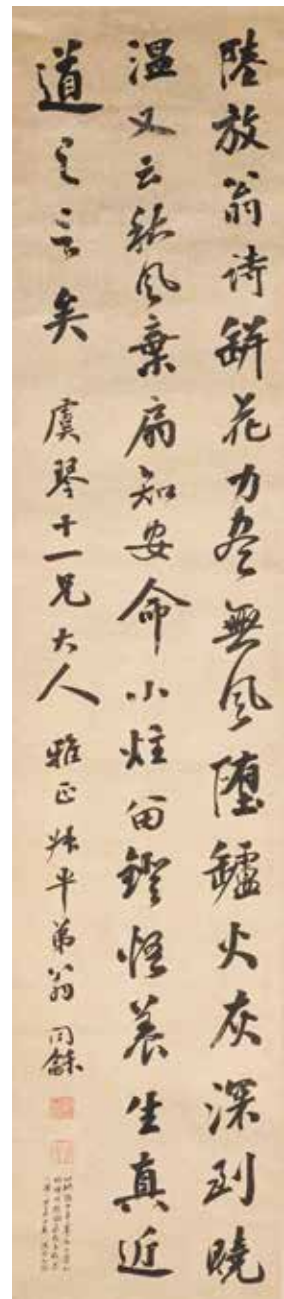 陸放翁诗缾花力盡無風堕鑪火灰深到曉
温又云秋風棄扇知安命小炷留鐙悟養生真近
道之言矣
虞琴十一兄大人
雅正 叔平弟翁同龢